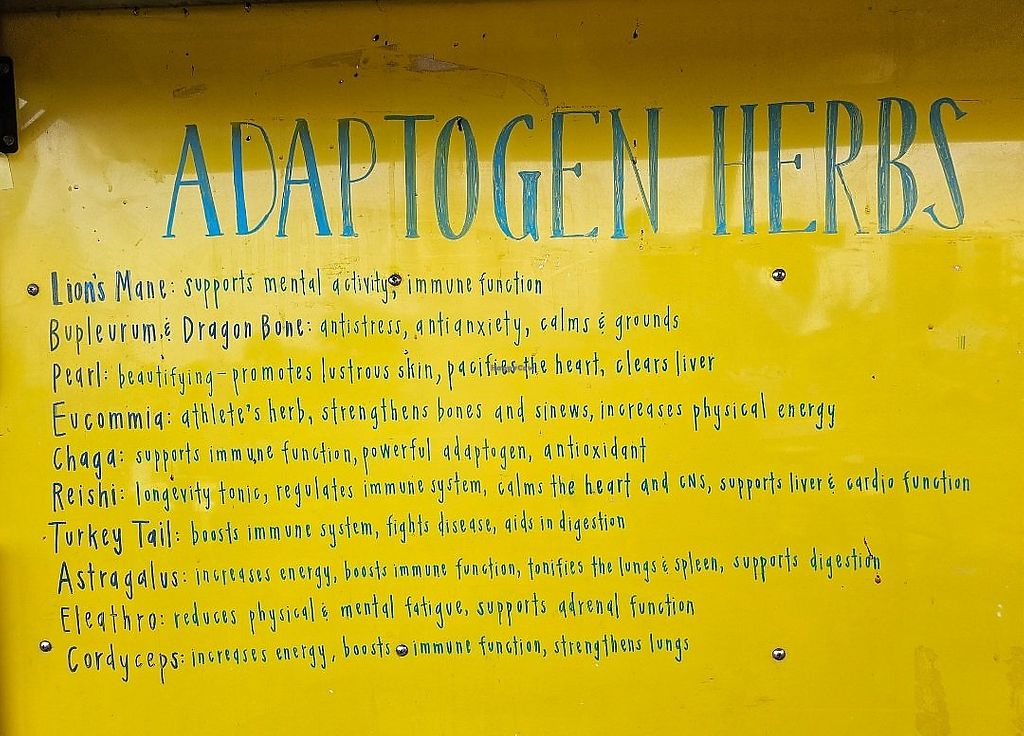 ADAPTOGEN HERBS
Lion's Mane: supports mental activity, immune function
Bupleurum & Dragon Bone: antistress, antianxiety, calms & grounds
Pearl: beautifying - promotes lustrous skin, pacifies the heart, clears liver
Eucommia: athlete's herb, strengthens bones and sinews, increases physical energy
Chaga: supports immune function, powerful adaptogen, antioxidant
Reishi: longevity tonic, regulates immune system, calms the heart and CNS, supports liver & cardio function
Turkey Tail: boosts immune system, fights disease, aids in digestion
Astragalus: increases energy, boosts immune function, tonifies the lungs & spleen, supports digestion
Eleathro: reduces physical & mental fatigue, supports adrenal function
Cordyceps: increases energy, boosts immune function, strengthens lungs